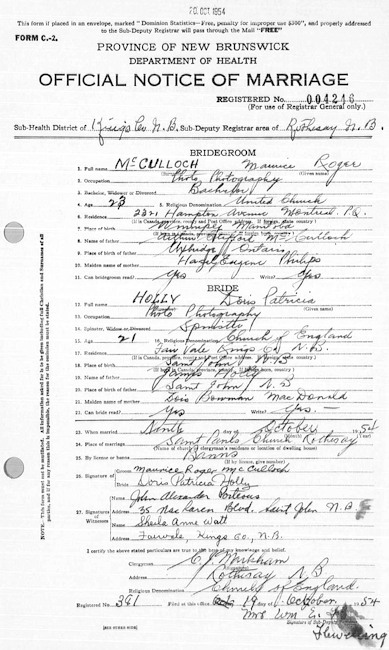 20 OCT 1954
This form if placed in an envelope, marked "Dominion Statistics—Free, penalty for improper use $300", and properly addressed
to the Sub-Deputy Registrar will pass through the Mail "FREE"
FORM C.-2.
PROVINCE OF NEW BRUNSWICK
DEPARTMENT OF HEALTH
OFFICIAL NOTICE OF MARRIAGE
REGISTERED No. 004246
(For use of Registrar General only.)
Sub-Health District of Kings Co. N.B. Sub-Deputy Registrar area of Rothesay N.B.
BRIDEGROOM
1. Full name McCULLOCH Maurice Roger
(Surname) (Given name)
2. Occupation Photo Photography
3. Bachelor, Widower or Divorced Bachelor
4. Age 23 5. Religious Denomination United Church
6. Residence 2321 Hampton Avenue Montreal P.Q.
7. Place of birth Winnipeg Manitoba
8. Name of father McCulloch
9. Place of birth of father Uxbridge Ontario
10. Maiden name of mother Hazel Eugene Philips
11. Can bridegroom read? Yes Write? Yes
BRIDE
12. Full name HOLLY Doris Patricia
(Surname) (Given name)
13. Occupation Photo Photography
14. Spinster, Widow or Divorced Spinster
15. Age 21 16. Religious Denomination Church of England
17. Residence Fair Vale Kings Co. N.B.
18. Place of birth Saint John N.B.
19. Name of father James Holly
20. Place of birth of father Saint John N.B.
21. Maiden name of mother Lois Bowman MacDonald
22. Can bride read? Yes Write? Yes
23. When married day of October 1954
24. Place of marriage Saint Pauls Church Rothesay
(Name of church or clergyman's residence or location of dwelling house)
25. By license or banns Banns
(If by license, give number)
26. Signature of Groom Maurice Roger McCulloch
Bride Doris Patricia Holly
27. Signature of Witnesses
Name John Alexander
Address 35 MacLaren Blvd. Saint John N.B.
Name Sheila Anne Watt
Address Fairvale, Kings Co., N.B.
I certify the above stated particulars are true to the best of my knowledge and belief.
Clergyman C.J. Markham
Address Rothesay N B
Religious Denomination Church of England.
Registered No. 361 Filed at this office 19 October 1954
Mrs Wm E. Flewelling
Signature of Sub-Deputy
(SEE OTHER SIDE)
NOTE. This form must not be mutilated. All information asked for is to be given including full Christian and Surnames of all
parties, and if for any reason this is impossible, the reason for the omission must be stated.